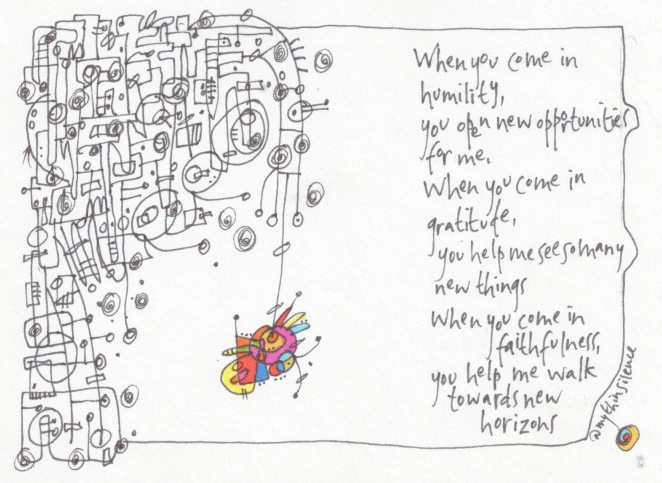 When you come in
humility,
you open new opportunities
for me.
When you come in
gratitude,
you help me see so many
new things
When you come in
faithfulness,
you help me walk
towards new
horizons
@mythinsilence